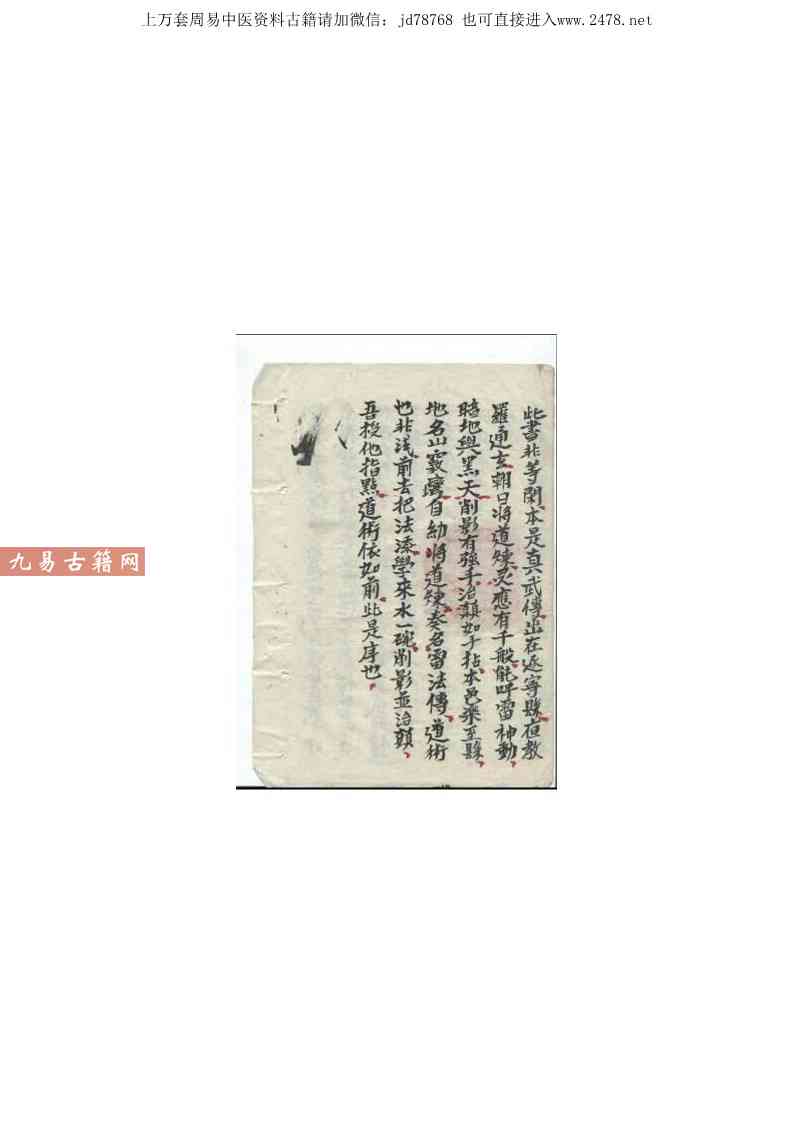 上万套周易中医资料古籍请加微信：jd78768 也可直接进入www.2478.net
此書非等閑本是真武傳出在返寧縣宣教
羅通玄朝日將道煉灵應有千般能呼雷神動
暗地與黑天削影有强手治顛如手拈本邑來至縣
地名山竅自幼將道煉奏名雷法傳道術
也非浅前去把法添學來水一碗削影並治顛
吾授他指點道術依如前此是序也
九易古籍网